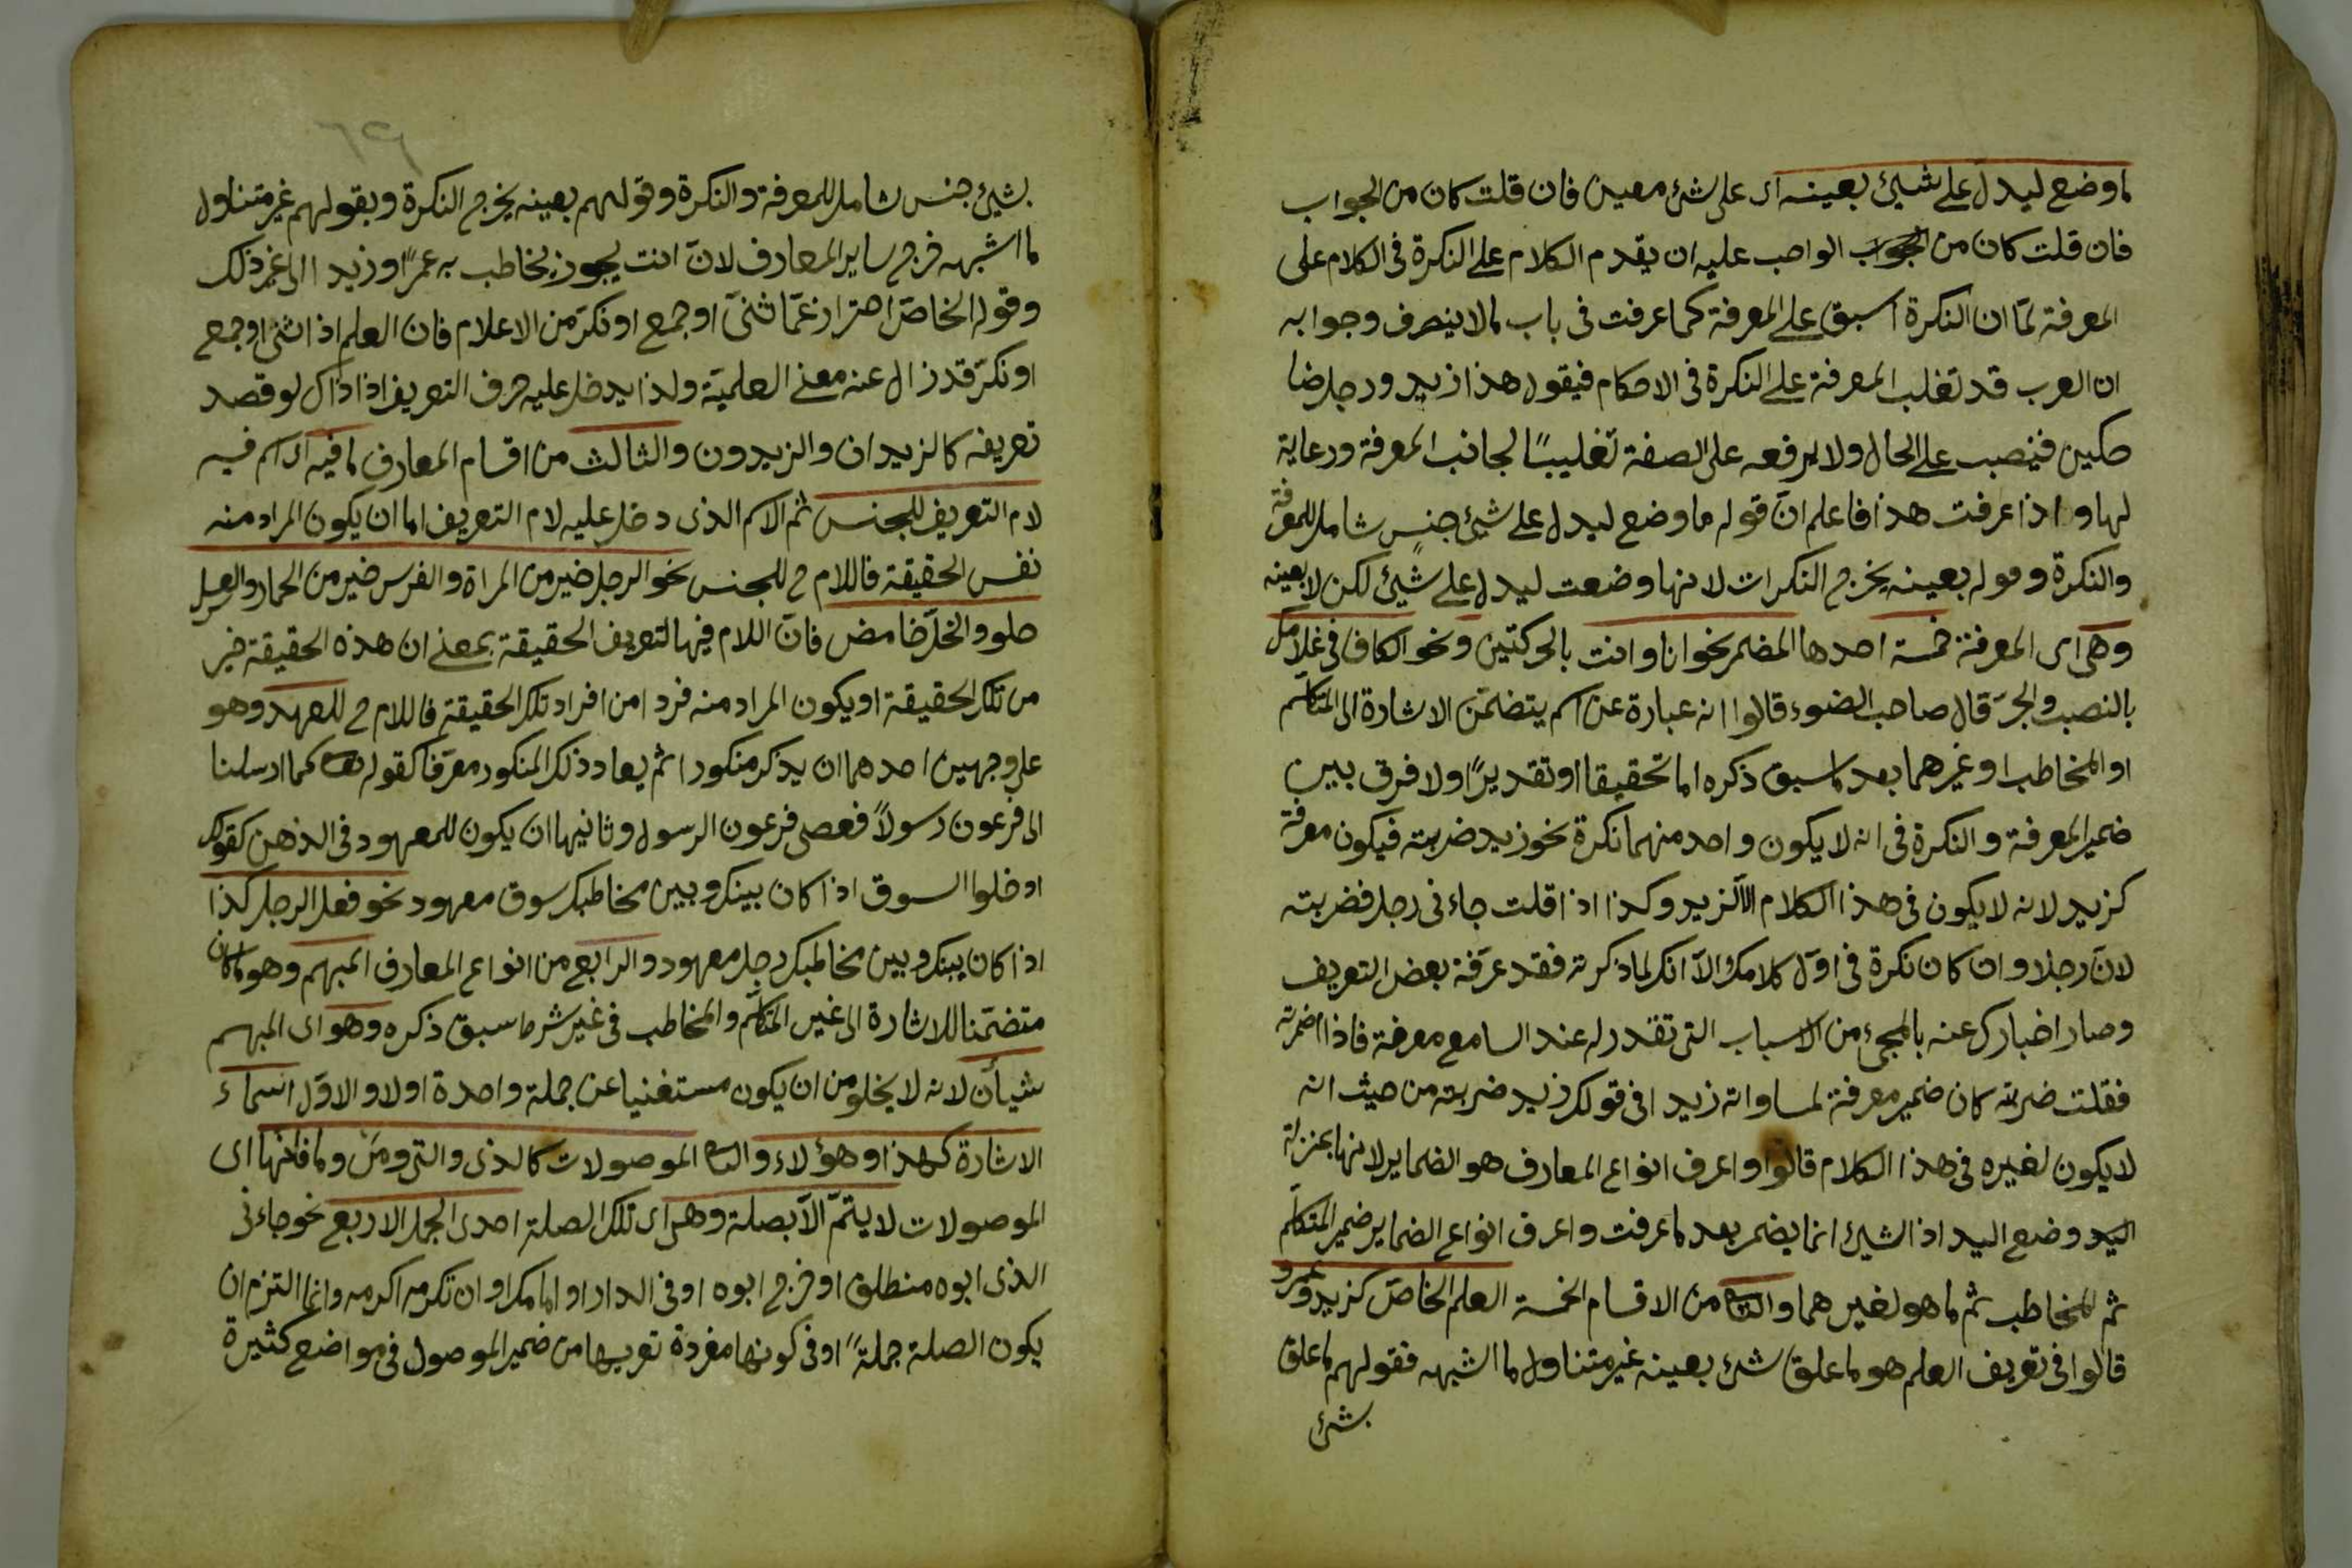 ما وضع ليدل على شيئ بعينه اى على شئ معين فان قلت كان من الجواب
فان قلت كان من الجواب الواجب عليه ان يقدم الكلام على النكرة فى الكلام على
المعرفة لمّا ان النكرة اسبق على المعرفة كما عرفت فى باب مالا ينصرف وجوابه
ان العرب قد تغلب المعرفة على النكرة فى الاحكام فيقول هذا زيد ورجل ضا
حكين فينصب على الحال ولا يرفعه على الصفة تغليبًا لجانب المعرفة ورعاية
لها واذا عرفت هذا فاعلم انّ قوله ما وضع ليدل على شيئ جنس شامل للمعرفة
والنكرة وقوله بعينه يخرج النكرات لانها وضعت ليدل على شيئ لكن لا بعينه
وهى اى المعرفة خمسة احدها المضمر نحو انا وانت بالحركتين ونحو الكاف فى غلامك
بالنصب والجرّ قال صاحب الضوء قالوا انه عبارة عن اسم يتضمّن الاشارة الى المتكلّم
او المخاطب او غيرهما بعد ما سبق ذكره اما تحقيقا او تقديرًا ولا فرق بين
ضمير المعرفة والنكرة فى انه لا يكون واحد منهما نكرة نحو زيد ضربته فيكون معرفة
كزيد لانه لا يكون فى هذا الكلام الّا لزيد وكذا اذا قلت جاءنى رجل فضربته
لانّ رجلا وان كان نكرة فى اوّل كلامك الّا انك لما ذكرته فقد عرّفة بعض التعريف
وصار اخبارك عنه بالمجىء من الاسباب التى تقدر له عند السامع معرفة فاذا اضمرته
فقلت ضربته كان ضمير معرفة لمساواته زيدا فى قولك زيد ضربته من حيث انه
لا يكون لغيره فى هذا الكلام قالوا واعرف انواع المعارف هو الضماير لانها بمنزلة
اليد وضع اليد اذ الشيئ انما يضمر بعد ما عرفت واعرف انواع الضماير ضمير المتكلّم
ثم المخاطب ثم ما هو لغيرهما والثانى من الاقسام الخمسة العلم الخاصّ كزيد وعمرو
قالوا فى تعريف العلم هو ما علق شئ بعينه غير متناول ما اشبهه فقولهم ما علق
بشئ
٦٩
بشيئ جنس شامل للمعرفة والنكرة وقولهم بعينه يخرج النكرة وبقولهم غير متناول
ما اشبهه خرج ساير المعارف لانّ انت يجوز يخاطب به عمرًا وزيدا الى غير ذلك
وقوله الخاصّ احتراز عمّا ثنىّ او جمع او نكرّ من الاعلام فان العلم اذا ثنى او جمع
او نكرّ قد زال عنه معنى العلميّة ولذا يدخل عليه حرف التعريف اذا ذاك لو قصد
تعريفه كالزيدان والزيدون والثالث من اقسام المعارف ما فيه اى اسم فيه
لام التعريف للجنس ثم الاسم الذى دخل عليه لام التعريف اما ان يكون المراد منه
نفس الحقيقة فاللام ح للجنس نحو الرجل خير من المراة والفرس خير من الحمار والعسل
حلو والخلّ حامض فانّ اللام فيها لتعريف الحقيقة بمعنى ان هذه الحقيقة خير
من تلك الحقيقة او يكون المراد منه فردا من افراد تلك الحقيقة فاللام ح للعهد وهو
على وجهين احدهما ان يذكر منكورا ثم يعاد ذلك المنكور معرّفا كقوله تعالى كما ارسلنا
الى فرعون رسولاً فعصى فرعون الرسول وثانيها ان يكون للمعهود فى الذهن كقولك
ادخلوا السوق اذا كان بينك وبين مخاطبك سوق معهود نحو فعل الرجل كذا
اذا كان بينك وبين مخاطبك رجل معهود والرابع من انواع المعارف المبهم وهو ما كان
متضمّنا للاشارة الى غير المتكلّم والمخاطب فى غير شرط سبق ذكره وهو اى المبهم
شيأن لانه لا يخلو من ان يكون مستغنيا عن جملة واحدة اولا والاوّل اسماء
الاشارة كهذا وهؤلاء والثانى الموصولات كالذى والتى ومن وما فانها اى
الموصولات لا يتمّ الّا بصلة وهى اى تلك الصلة احدى الجمل الاربع نحو جاءنى
الذى ابوه منطلق او خرج ابوه او فى الدار او امامك او ان تكرمه اكرمه وانما التزم ان
يكون الصلة جملةً او فى كونها مفردة تعريها من ضمير الموصول فى مواضع كثيرة